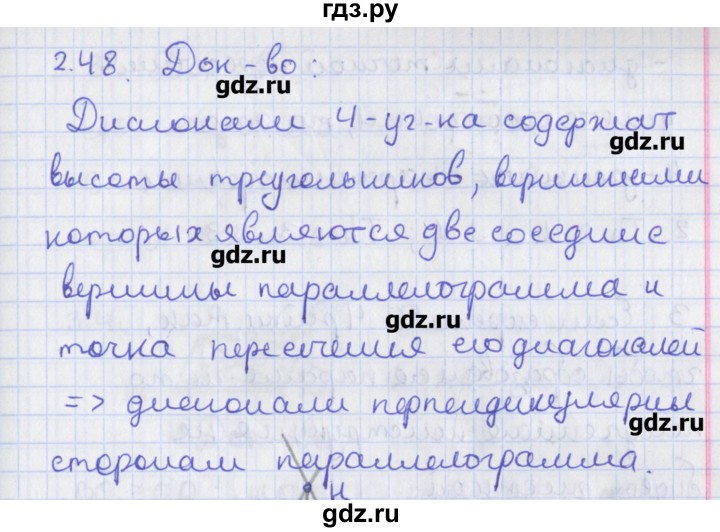 гдз.ру
2.48. Док-во:
gdz.ru
Диагонали 4-уг-ка содержат
gdz.ru
высоты треугольников, вершинами
которых являются две соседние
gdz.ru
вершины параллелограмма и
gdz.ru
точка пересечения его диагоналей
=> диагонали перпендикулярны
gdz.ru
сторонам параллелограмма.
H